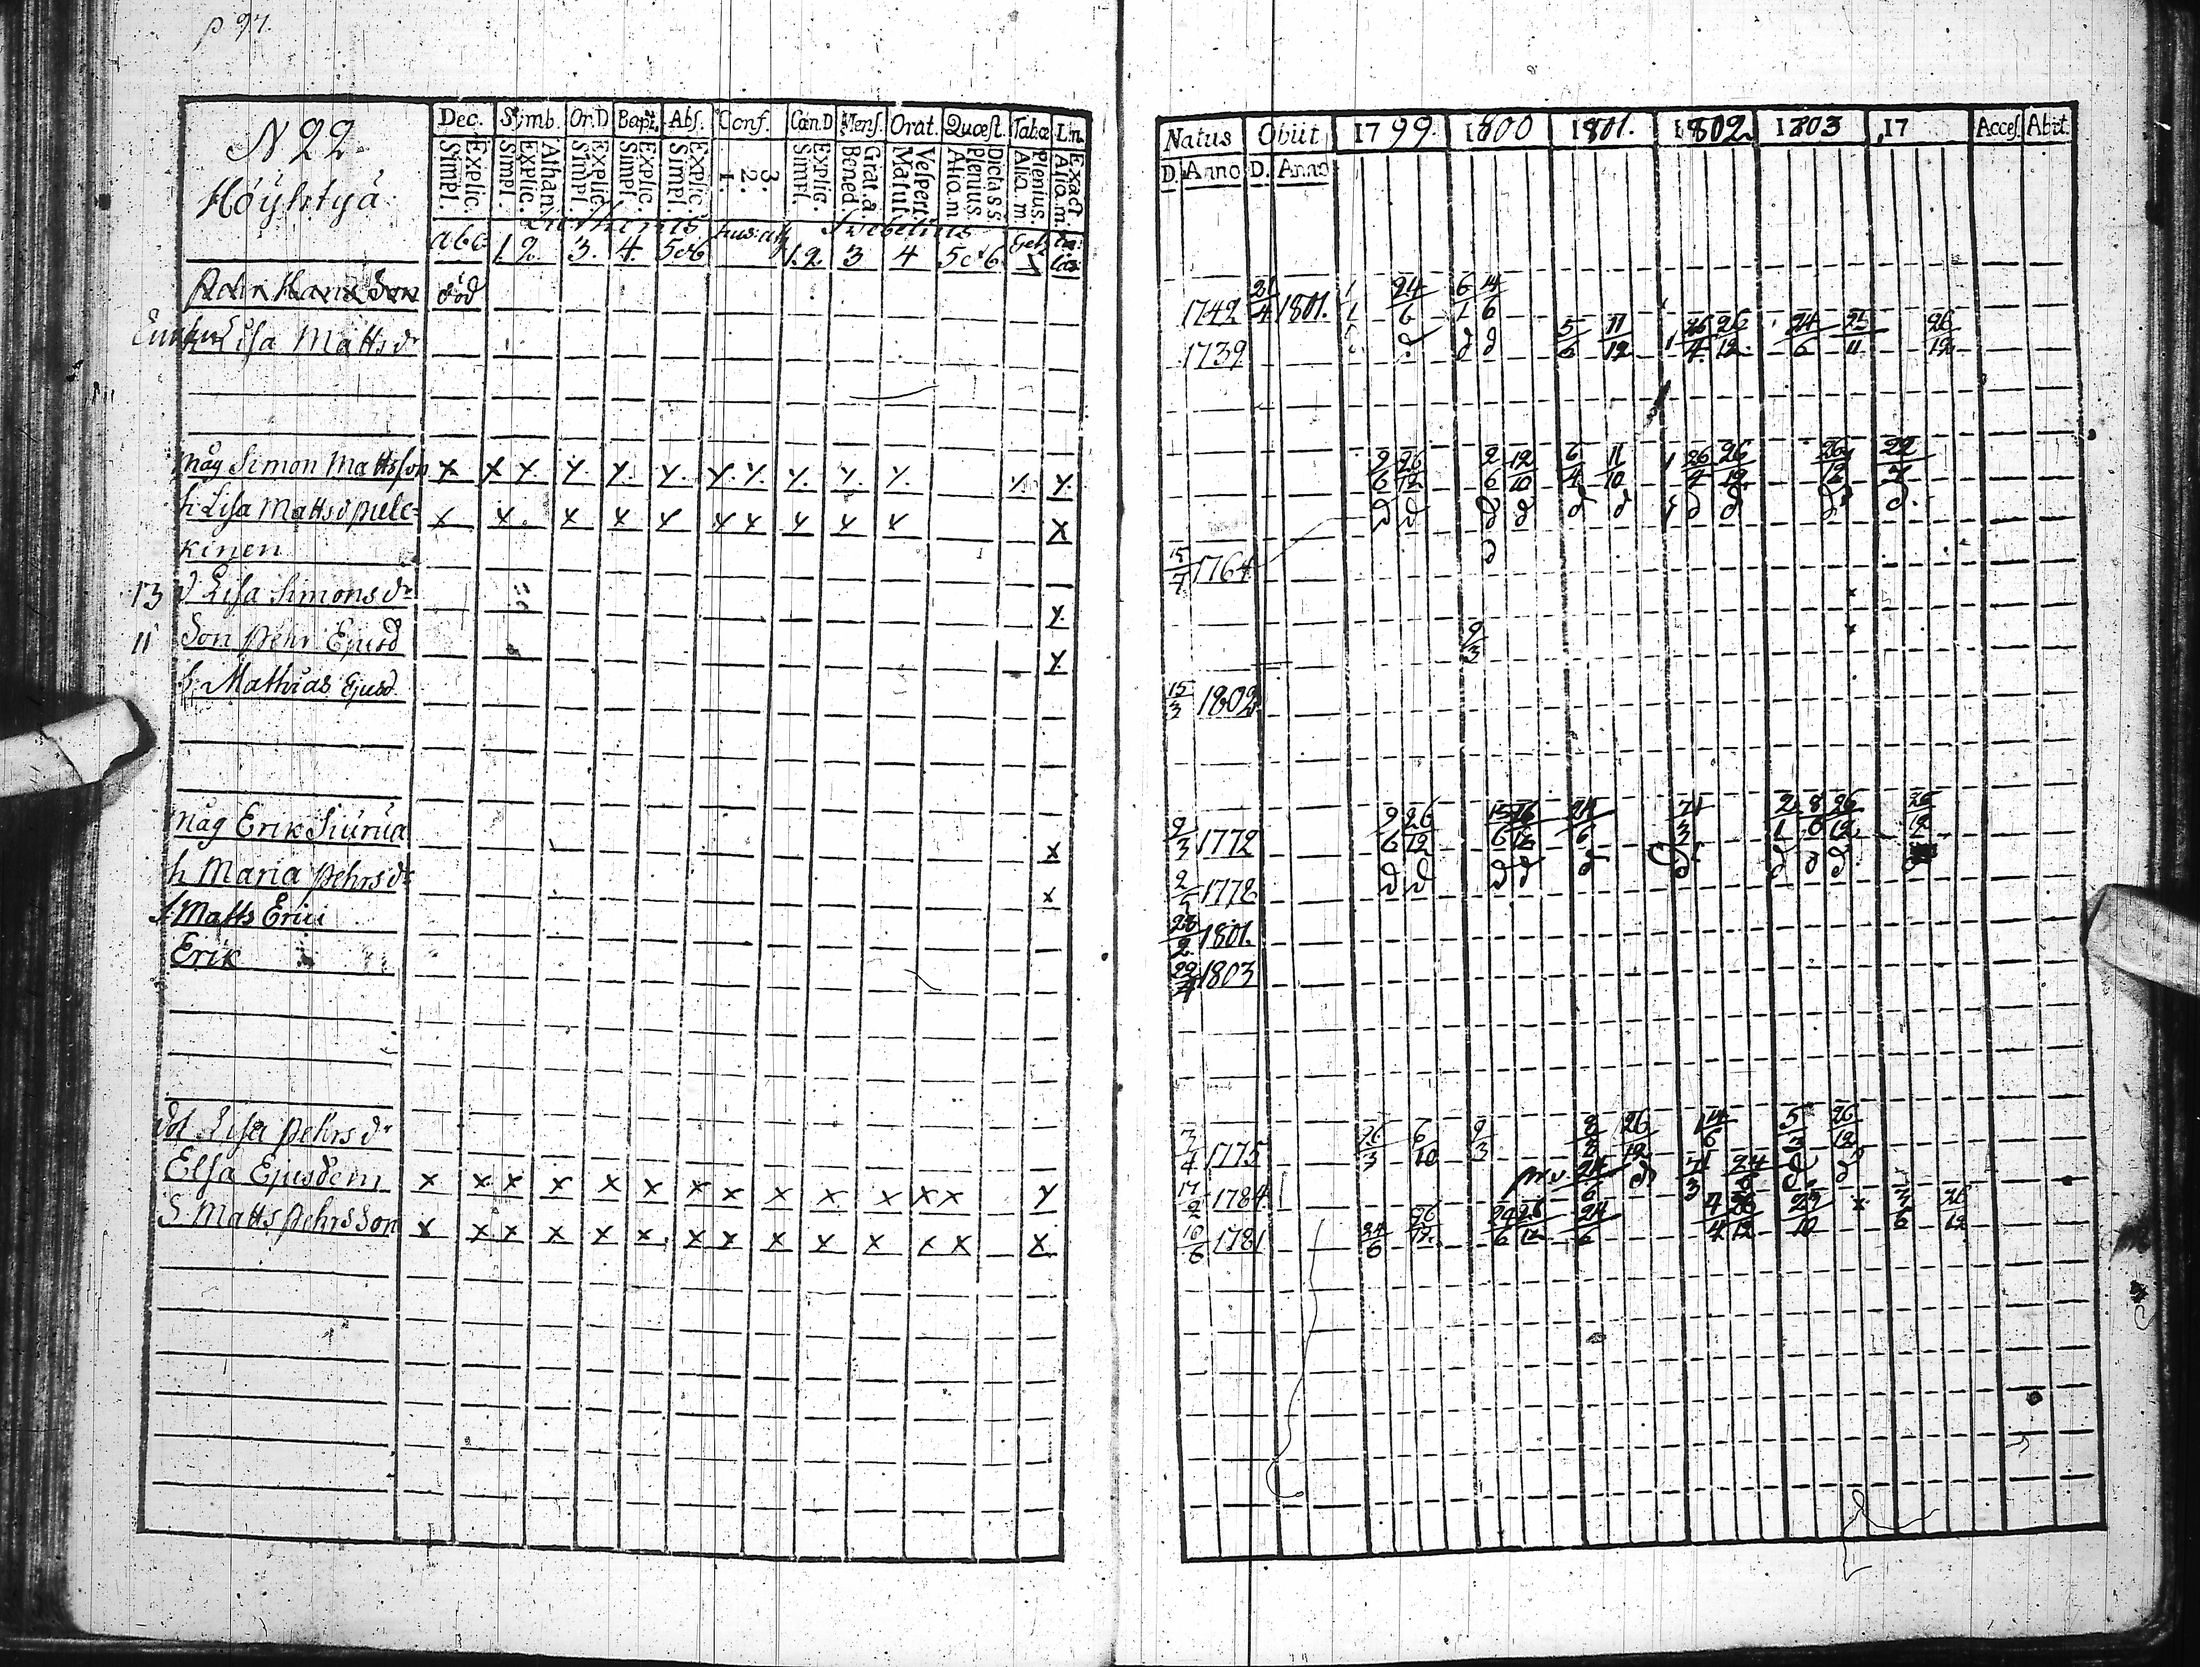 p 97.
N 22
Höyhtyä
Dec. Simb. Or.D Bapt. Abs. Conf. Cœn.D Mens. Orat. Quæst. Tabæ Lin.
Explic. Simpl. Athan. Explic. Simpl. Explic. Simpl. Explic. Simpl. Explic. Simpl. 3. 2. 1. Explic. Simpl. Grat.a. Bened. Vespert. Matut. Dicta s s. Plenius. Aliq.m. Plenius. Aliq.m. Exact Aliq.m.
Lutherus Svebelius
abc 1.2. 3. 4. 5 o 6 1.2. 3 4 5 o 6
Natus Obiit 1799 1800 1801. 1802 1803 17 Acces. Abiit.
D. Anno D. Anno
Pehr Hans Son död 1742 21/4 1801. 1/1 24/6 6/1 14/6
Enkan Lisa Matts dr 1739 d d d 5/6 11/12 26/4 26/12 24/6 26/12
måg Simon Mattsson x x y. y. y. y. y. y. y. y. y. y. y. 2/6 26/12 2/6 12/10 6/4 11/10 26/4 26/12 26/12 22/4
h. Lisa Matts d pule= x x. x x x x x x x x x d d d d d d d d d d.
kinen 15/7 1764 d
13 d Lisa Simons dr y.
11 Son Pehr Ejusd y. 9/3
s. Mathias Ejusd. 15/3 1802
måg Erik Siurua x 2/3 1772 2/6 26/12 15/6 26/12 24/6 21/3 2/1 8/6 26/12 26/12
h Maria Pehrs dr x 1778 d d d d d d d d d
s Matts Erici 23/2 1801.
Erik 29/4 1803
dot Lisa Pehrs dr 3/4 1775 26/3 6/10 9/3 8/3 26/12 14/6 5/3 26/12
Elsa Ejusdem x x x x x x x x x x x x x y 17/2 1784 24/6 d 21/3 24/6 d d
S. Matts Pehrs Son x x x x x x x x x x x x x x 10/6 1781 24/6 26/12 24/6 26/12 24/6 4/4 26/12 23/10 x 3/6 26/12